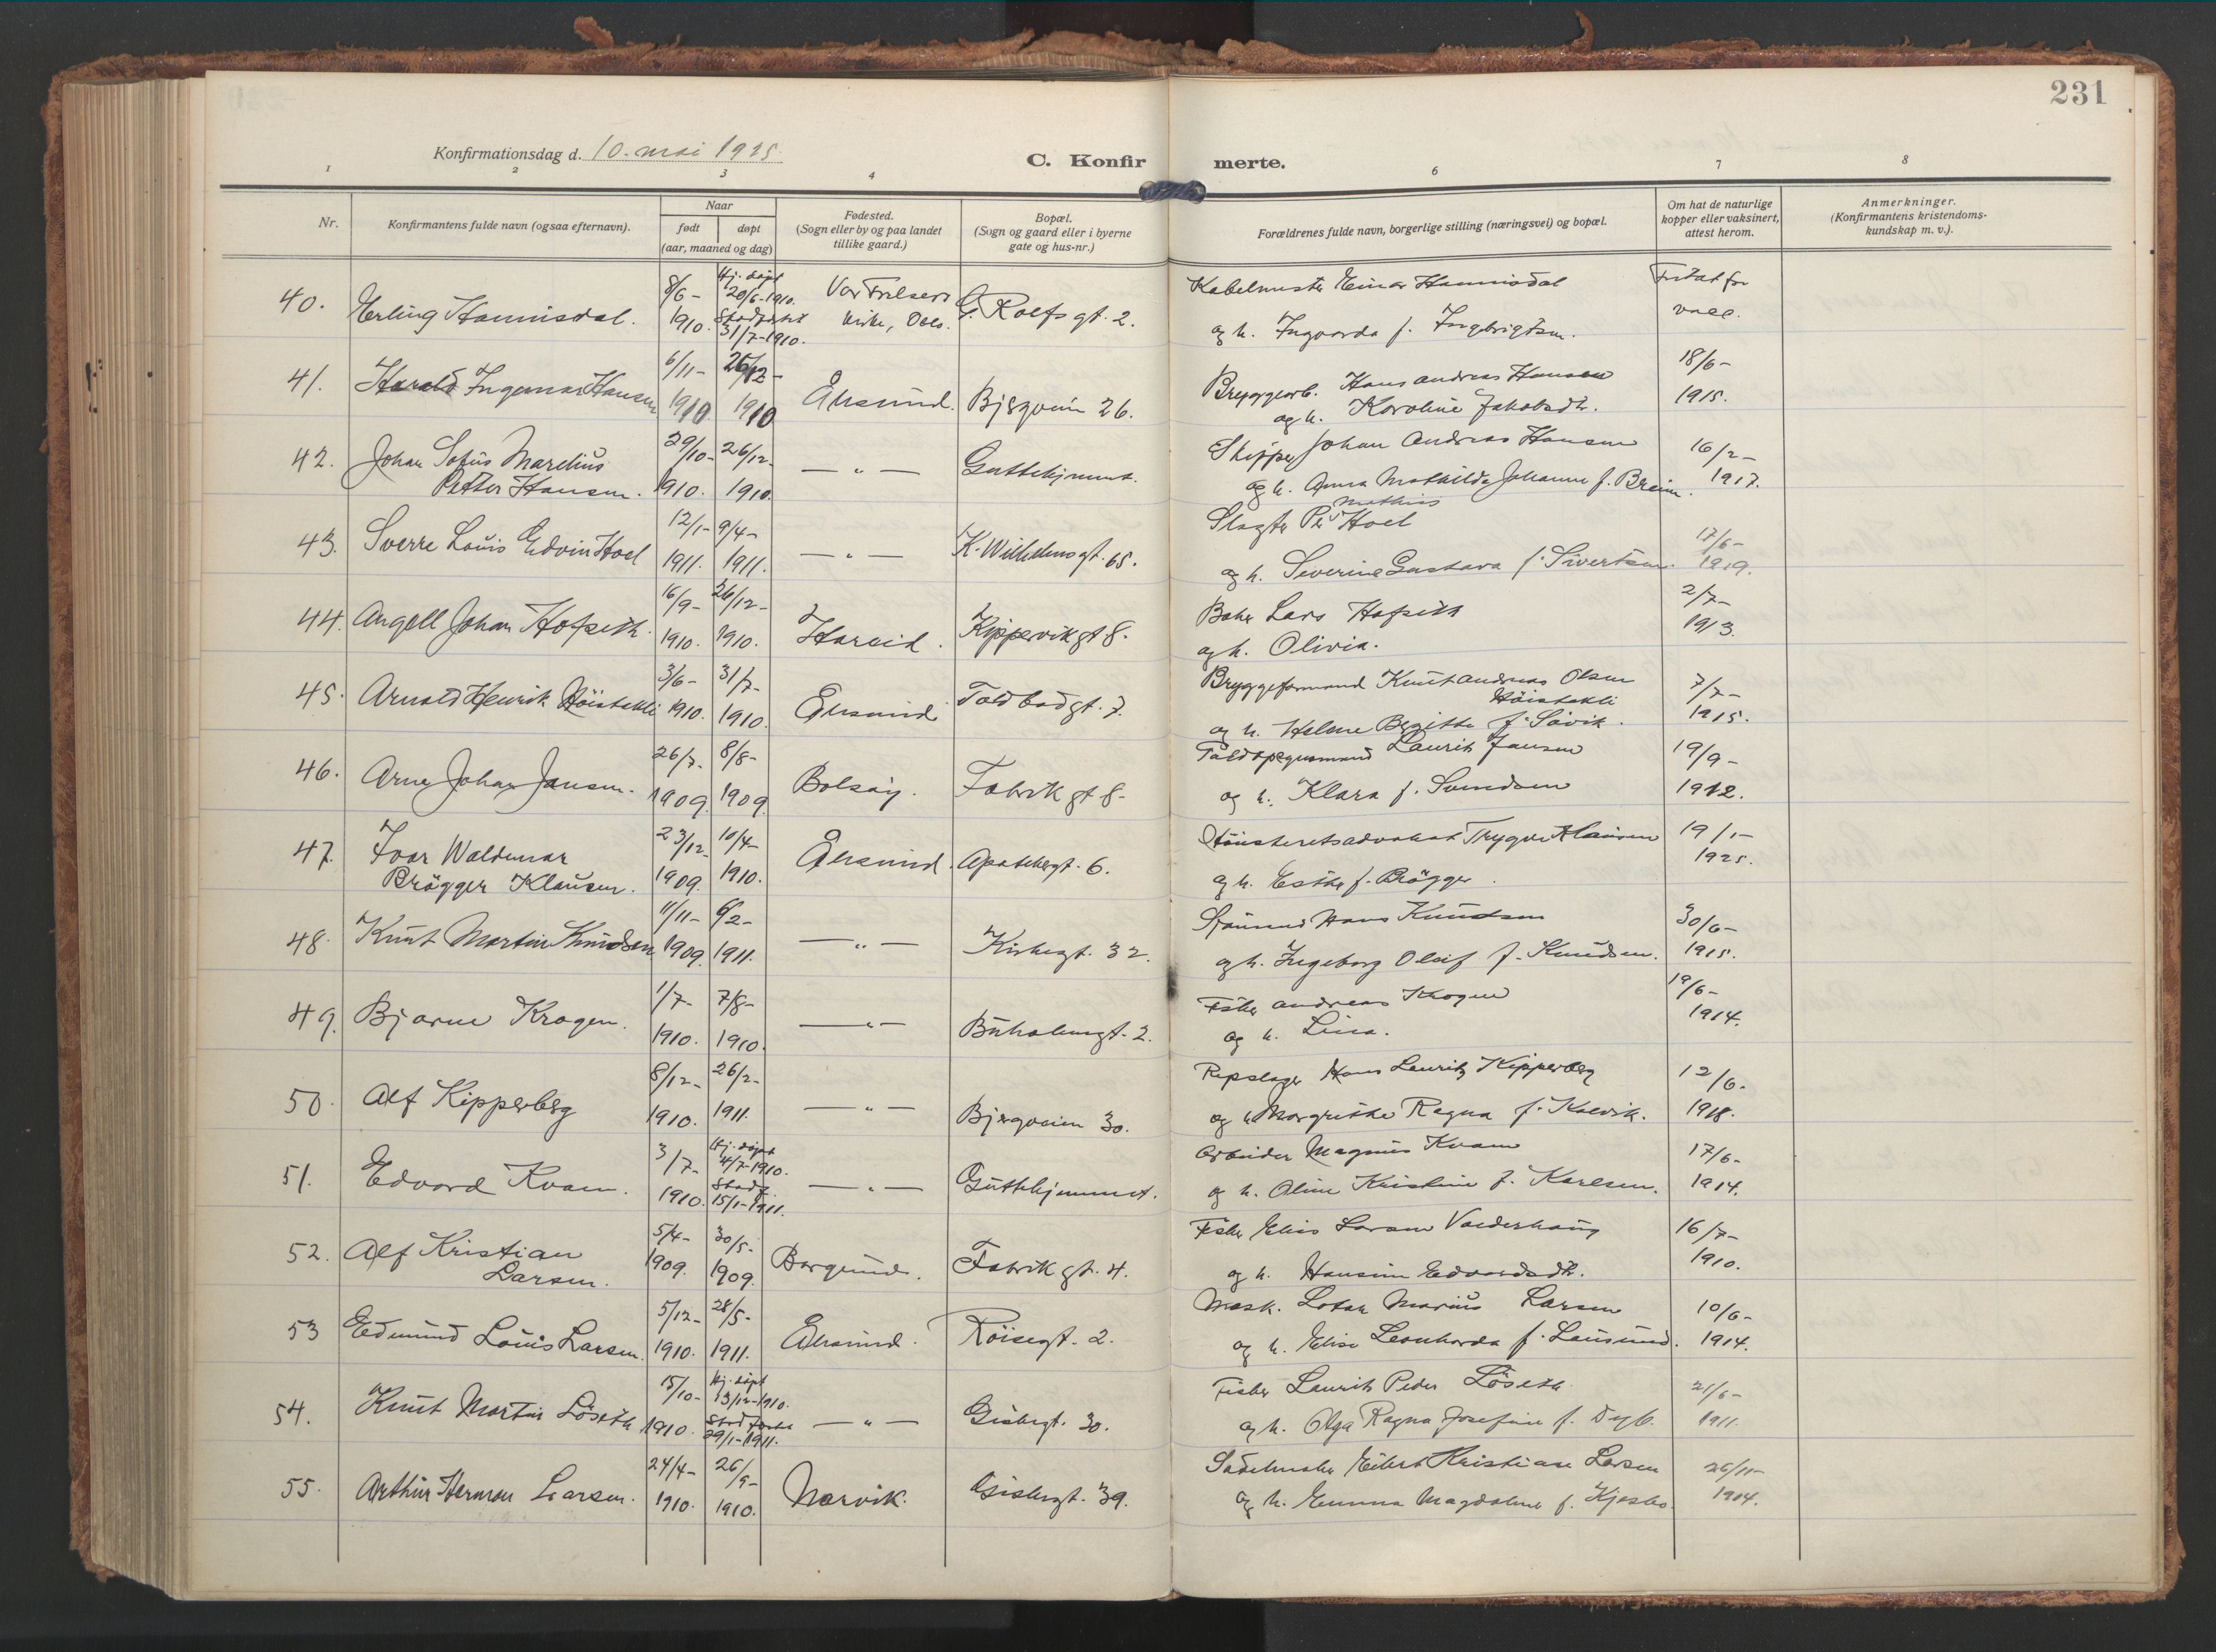 231
Konfirmationsdag d. 10. mai 1925.
C. Konfirmerte.
1 2 3 4 6 7 8
Nr.
Konfirmantens fulde navn (ogsaa efternavn).
Naar
født
døpt
(aar, maaned og dag)
Fødested.
(Sogn eller by og paa landet
tillike gaard.)
Bopæl.
(Sogn og gaard eller i byerne
gate og hus-nr.)
Forældrenes fulde navn, borgerlige stilling (næringsvei) og bopæl.
Om hat de naturlige
kopper eller vaksinert,
attest herom.
Anmerkninger.
(Konfirmantens kristendoms-
kundskap m. v.).
40. Erling Hannisdal. 8/6- 1910. Hj. døpt 20/6-1910. 31/7-1910. Vor Frelsers kirke, Oslo. G. Rolfsgt. 2. Einar Hannisdal
og h. Ingvarda f. Ingebrigtsen. Fritat for vacc.
41. Harald Ingemar Hansen 6/11- 1910 26/12- 1910 Ålesund. Bjergveien 26. Bryggearb. Hans Andreas Hansen
og h. Karoline Jakobsdtr. 18/6- 1915.
42. Johan Sofus Marelius
Petter Hansen. 29/10- 1910. 26/12- 1910. — „ — Guttehjemmet. Skipper Johan Andreas Hansen
og h. Anna Mathilde Johanne f. Breivik. 16/2- 1917.
43. Sverre Louis Edvin Hoel 12/1- 1911. 9/4- 1911. — „ — K. Wilhelmsgt. 65. Slagter Per Mathias Hoel
og h. Severine Gustava f. Sivertsen. 17/6- 1919.
44. Angell Johan Hofseth. 16/9- 1910. 26/12- 1910. Hareid. Kippervikgt 8. Baker Lars Hofseth
og h. Olivia. 2/7- 1913.
45. Arnold Henrik Höistakli 3/6- 1910. 31/7- 1910. Ålesund Toldbodgt. 7. Bryggeformand Knut Andreas Olsen
Höistakli
og h. Helene Begitte f. Sövik. 7/7- 1915.
46. Arne Johan Jansen. 26/7- 1909. 8/8- 1909 Bolsöy. Fabrikgt 8. Laurits Jansen
og h. Klara f. Svendsen 19/9- 1912.
47. Ivar Waldemar
Brögger Klausen. 23/12- 1909. 10/4- 1910. Ålesund. Apotekergt. 6. Höiesteretsadvokat Trygve Klausen
og h. Esther f. Brögger. 19/1- 1925.
48. Knut Martin Knudsen 11/11- 1909. 6/2- 1911. — „ — Kirkegt. 32. Sjömand Hans Knudsen
og h. Ingeborg Oleif f. Knudsen. 30/6- 1915.
49. Bjarne Krogen. 1/7- 1910. 7/8- 1910. — „ — Buholmgt. 2. Fisker Andreas Krogen
og h. Lina. 19/6- 1914.
50. Alf Kipperberg 8/12- 1910. 26/2- 1911. — „ — Bjergveien 30. Repslager Hans Lauritz Kipperberg
og h. Margrethe Ragna f. Kalvik. 12/6. 1918.
51. Edvard Kvam. 3/7- 1910. Hj. døpt 4/7-1910. Stadf. 15/1-1911. — „ — Guttehjemmet. Arbeider Magnus Kvam
og h. Oline Kristine f. Karlsen. 17/6- 1914.
52. Alf Kristian
Larsen. 5/4- 1909. 30/5- 1909. Borgund. Fabrikgt. 4. Fisker Elias Larsen Valderhaug
og h. Hansine Edvardsdtr. 16/7- 1910.
53 Edmund Louis Larsen. 5/12- 1910. 28/5- 1911. Ålesund. Röisegt. 2. Mask. Lotar Marius Larsen
og h. Elise Leonharda f. Lausund. 10/6- 1914.
54. Knut Martin Löseth 15/10- 1910. Hj. døpt 13/12-1910. 29/1-1911. — „ — Giskegt. 30. Fisker Laurits Peder Löseth
og h. Olga Ragna Josefine f. Dyb. 21/6- 1911.
55. Arthur Herman Larsen. 24/4- 1910. 26/9- 1910. Narvik. Giskegt. 39. Sadelmaker Eilert Kristian Larsen
og h. Emma Magdalene f. Kjesbo. 26/11- 1914.